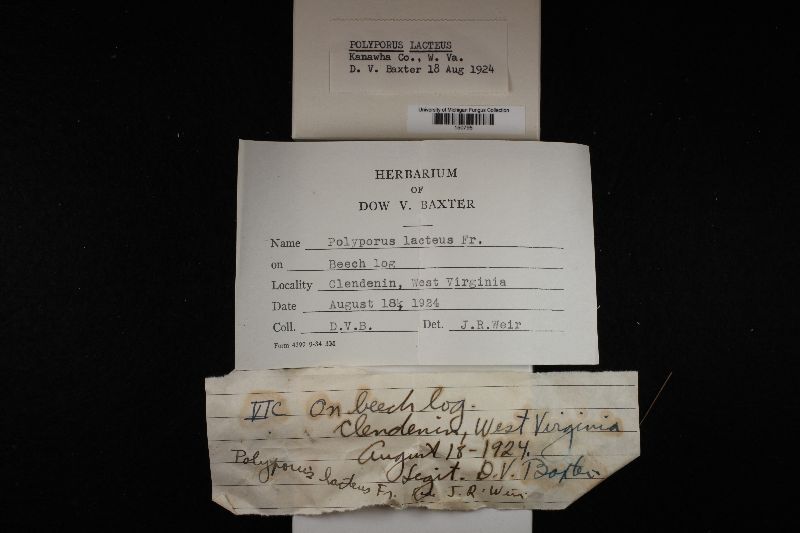 POLYPORUS LACTEUS
Kanawha Co., W. Va.
D. V. Baxter 18 Aug 1924
University of Michigan Fungus Collection
HERBARIUM
OF
DOW V. BAXTER
Name Polyporus lacteus Fr.
on Beech log
Locality Clendenin, West Virginia
Date August 18, 1924
Coll. D.V.B. Det. J.R.Weir
VIC On beech log.
Clendenin, West Virginia
August 18-1924.
Legit. D.V. Baxter
Polyporus lacteus Fr. J. R. Weir